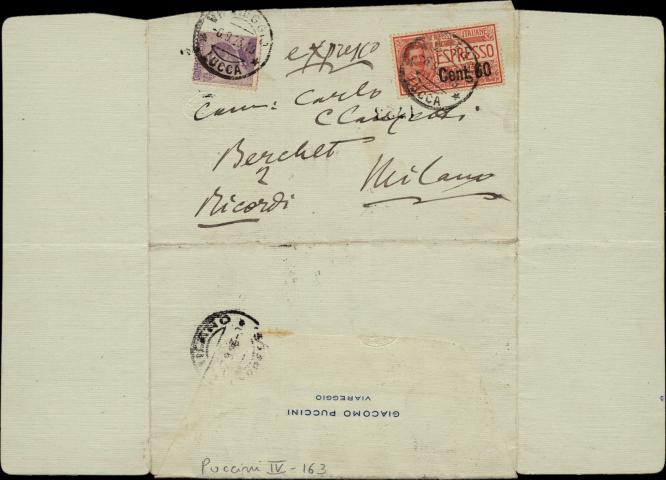 VIAREGGIO
LUCCA
expresso
POSTE ITALIANE
ESPRESSO
Cent. 60
LUCCA
Com: Carlo
Clausetti
Berchet
2
Milano
Ricordi
MILANO
GIACOMO PUCCINI
VIAREGGIO
Puccini IV - 163